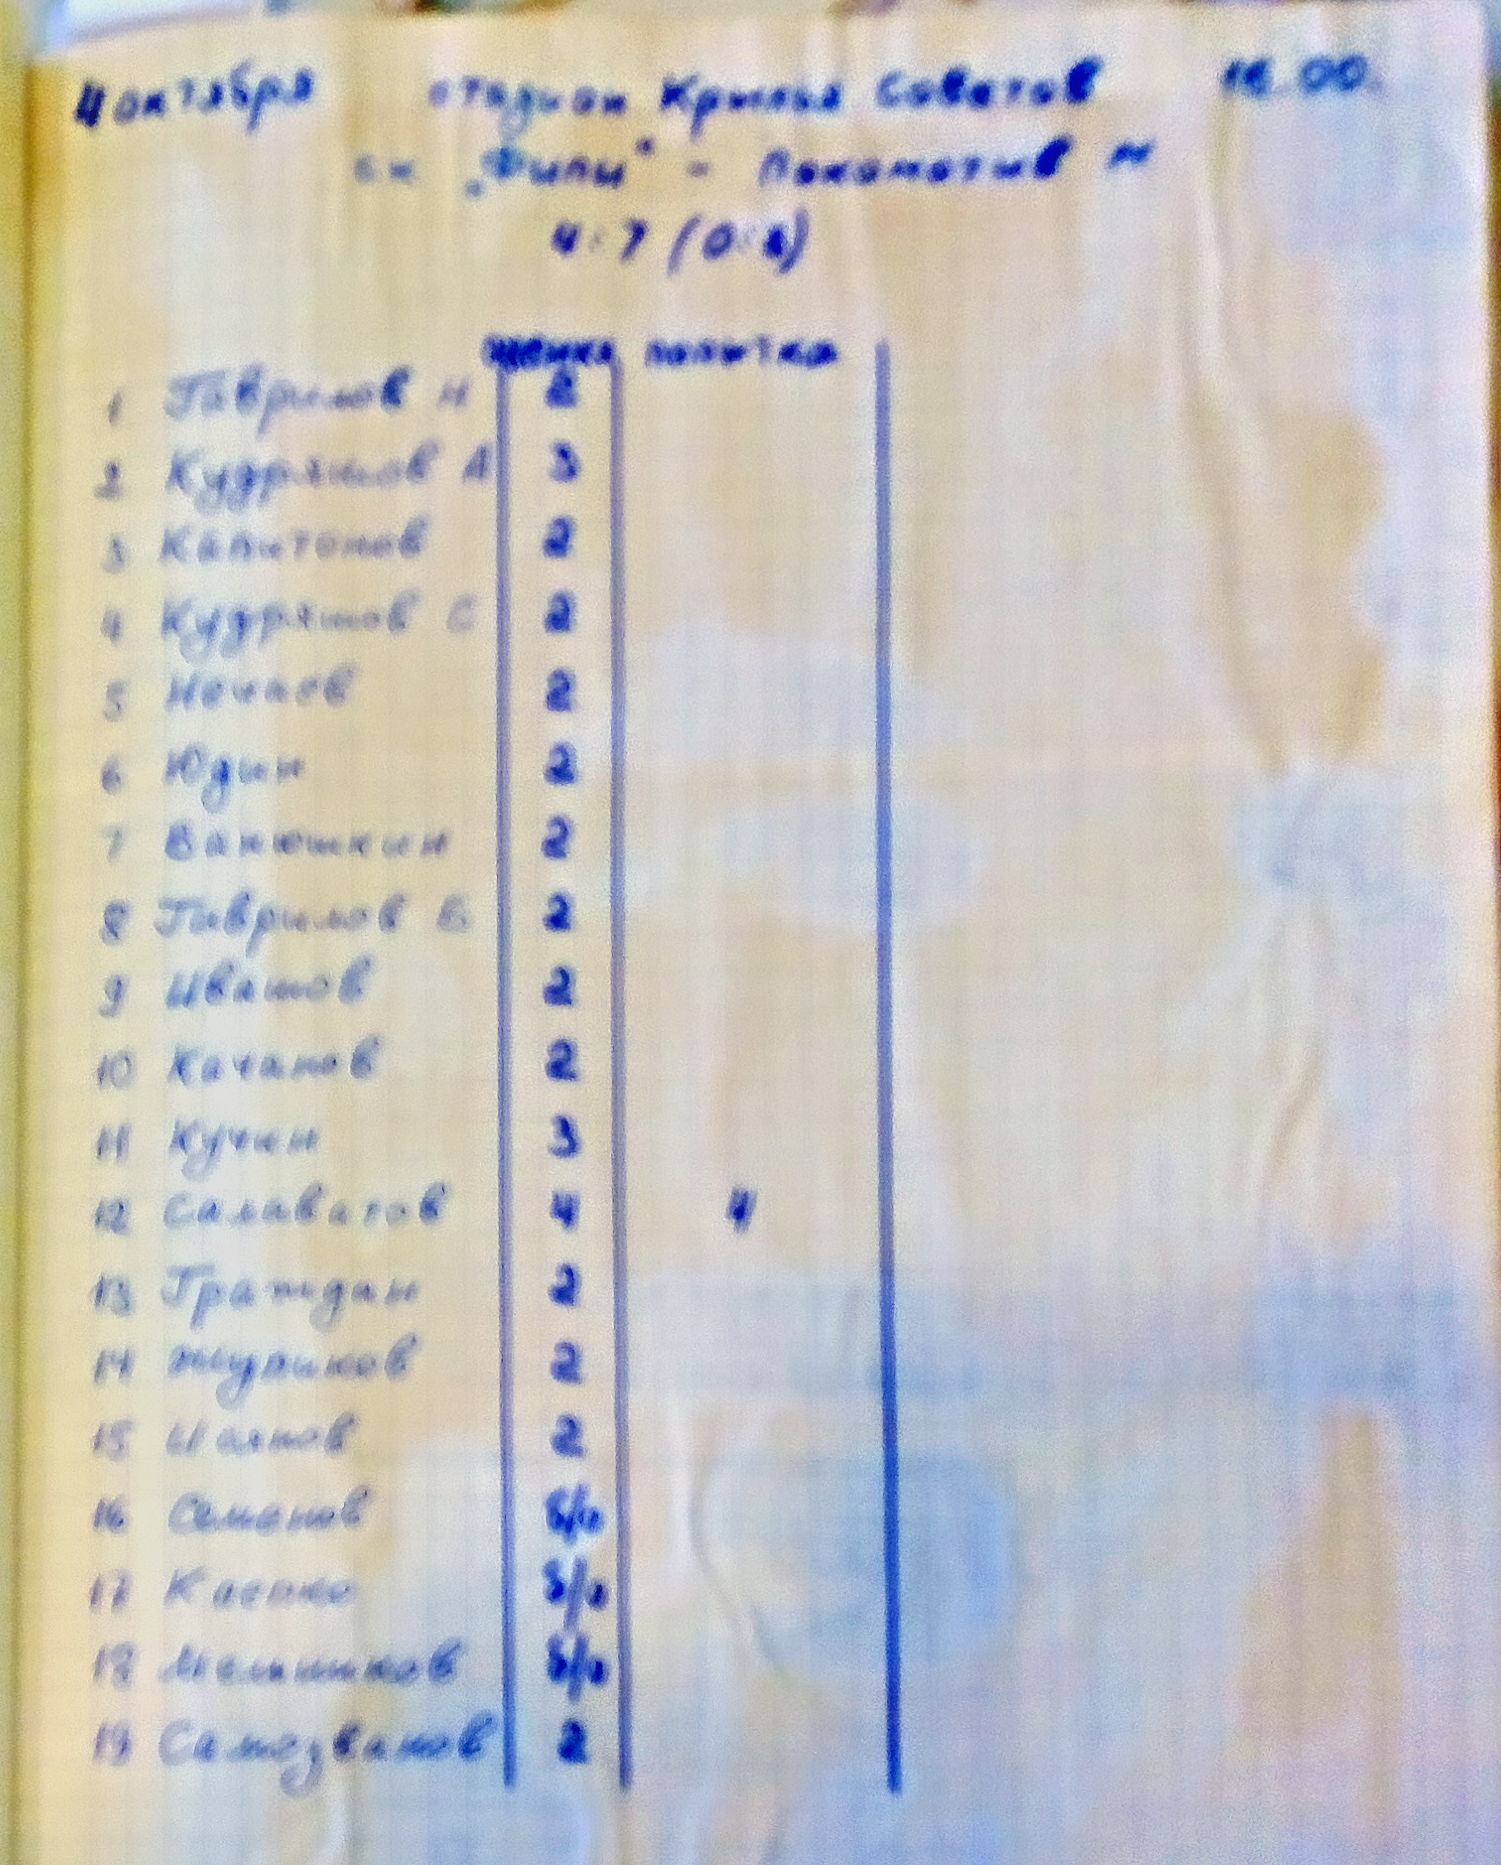 4 октября стадион Крылья Советов 16.00.
ск "Фили" - Локомотив М
4:7 (0:
оценка попытка
1 Гаврилов Н 2
2 Кудряшов А 3
3 Капитонов 2
4 Кудряшов С 2
5 Нечаев 2
6 Юдин 2
7 Ванюшкин 2
8 Гаврилов В 2
9 Ивашов 2
10 Качанов 2
11 Кучин 3
12 Салаватов 4 4
13 Граждан 2
14 Жуликов 2
15 2
16 Семенов б/о
17 б/о
18 Мельников б/о
19 Самозванов 2